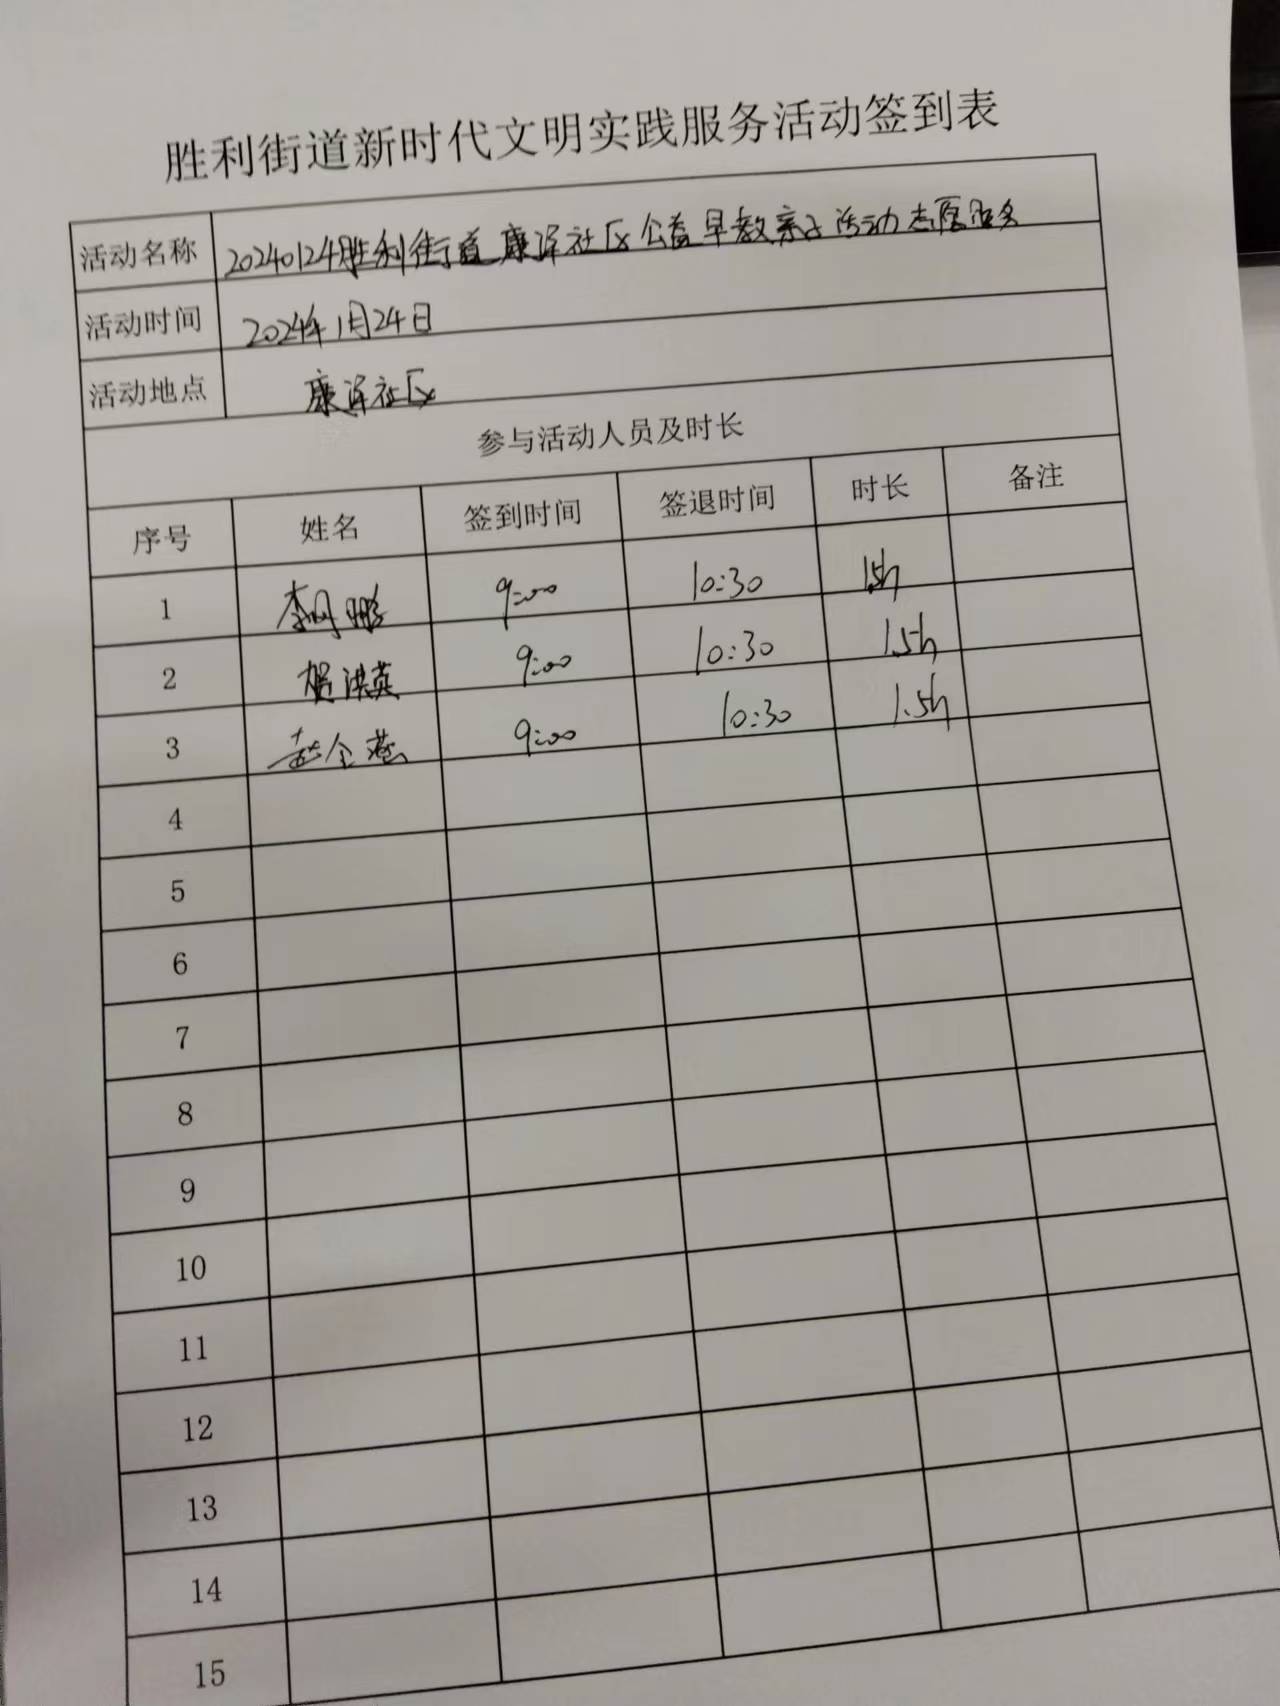 胜利街道新时代文明实践服务活动签到表
活动名称 20240124胜利街道康泽社区公益早教亲子活动志愿服务
活动时间 2024年1月24日
活动地点 康泽社区
参与活动人员及时长
序号 姓名 签到时间 签退时间 时长 备注
1 李 鹏 9:00 10:30 1.5h
2 贺洪英 9:00 10:30 1.5h
3 赵全燕 9:00 10:30 1.5h
4
5
6
7
8
9
10
11
12
13
14
15